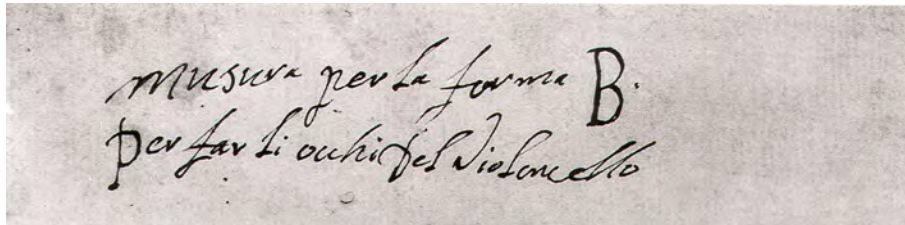 musura per la forma B.
Per far li occhi del Violoncello